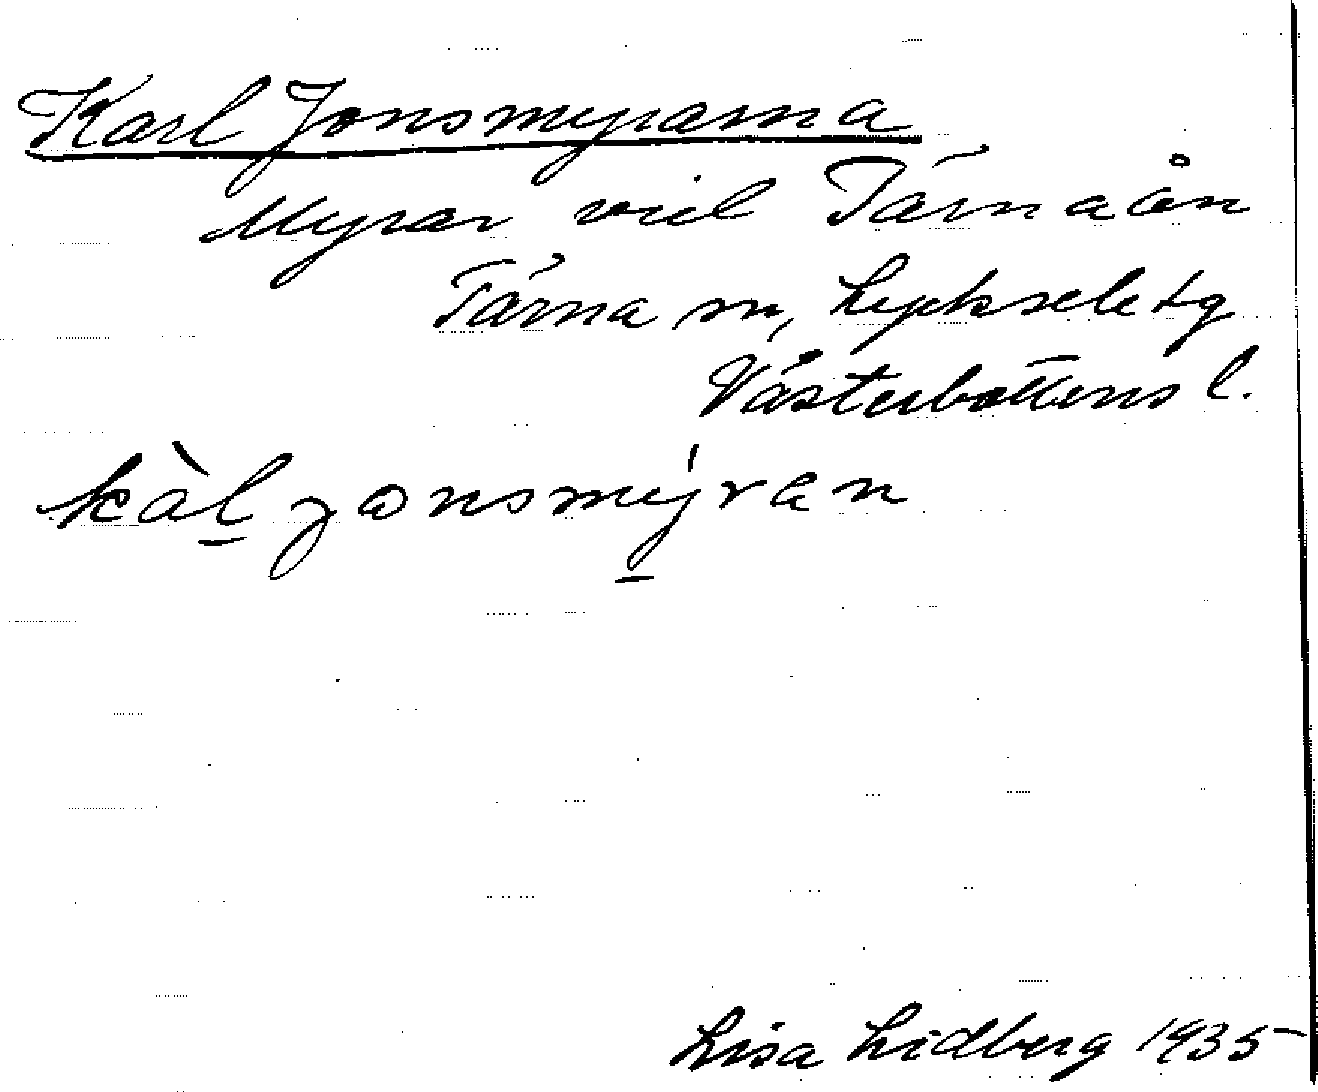 Karl Jonsmyrarna
Myrar vid Tärnaån
Tärna sn, Lycksele tg
Västerbottens l.
kàl jonsmýran
Lisa Lidberg 1935